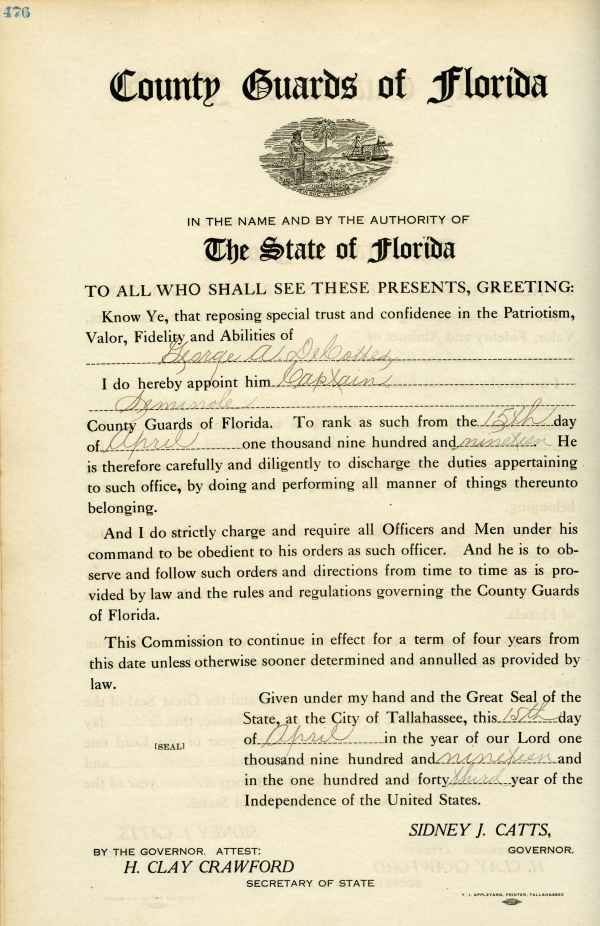 476
County Guards of Florida
IN GOD WE TRUST
IN THE NAME AND BY THE AUTHORITY OF
The State of Florida
TO ALL WHO SHALL SEE THESE PRESENTS, GREETING:
Know Ye, that reposing special trust and confidenee in the Patriotism,
Valor, Fidelity and Abilities of
George A. DeCottes,
I do hereby appoint him Captain
Seminole
County Guards of Florida. To rank as such from the 15th day
of April one thousand nine hundred and nineteen. He
is therefore carefully and diligently to discharge the duties appertaining
to such office, by doing and performing all manner of things thereunto
belonging.
And I do strictly charge and require all Officers and Men under his
command to be obedient to his orders as such officer. And he is to ob-
serve and follow such orders and directions from time to time as is pro-
vided by law and the rules and regulations governing the County Guards
of Florida.
This Commission to continue in effect for a term of four years from
this date unless otherwise sooner determined and annulled as provided by
law.
Given under my hand and the Great Seal of the
State, at the City of Tallahassee, this 15th day
of April in the year of our Lord one
[SEAL]
thousand nine hundred and nineteen and
in the one hundred and forty third year of the
Independence of the United States.
SIDNEY J. CATTS,
GOVERNOR.
BY THE GOVERNOR. ATTEST:
H. CLAY CRAWFORD
SECRETARY OF STATE
T. J. APPLEYARD, PRINTER, TALLAHASSEE